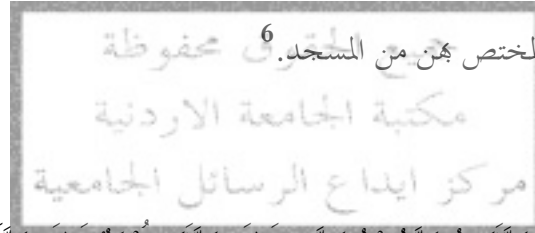 لختص بهن من المسجد.6
جميع الحقوق محفوظة
مكتبة الجامعة الاردنية
مركز ايداع الرسائل الجامعية